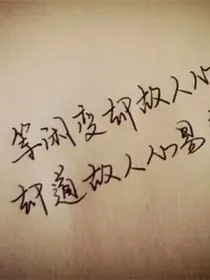 等闲变却故人心
却道故人心易